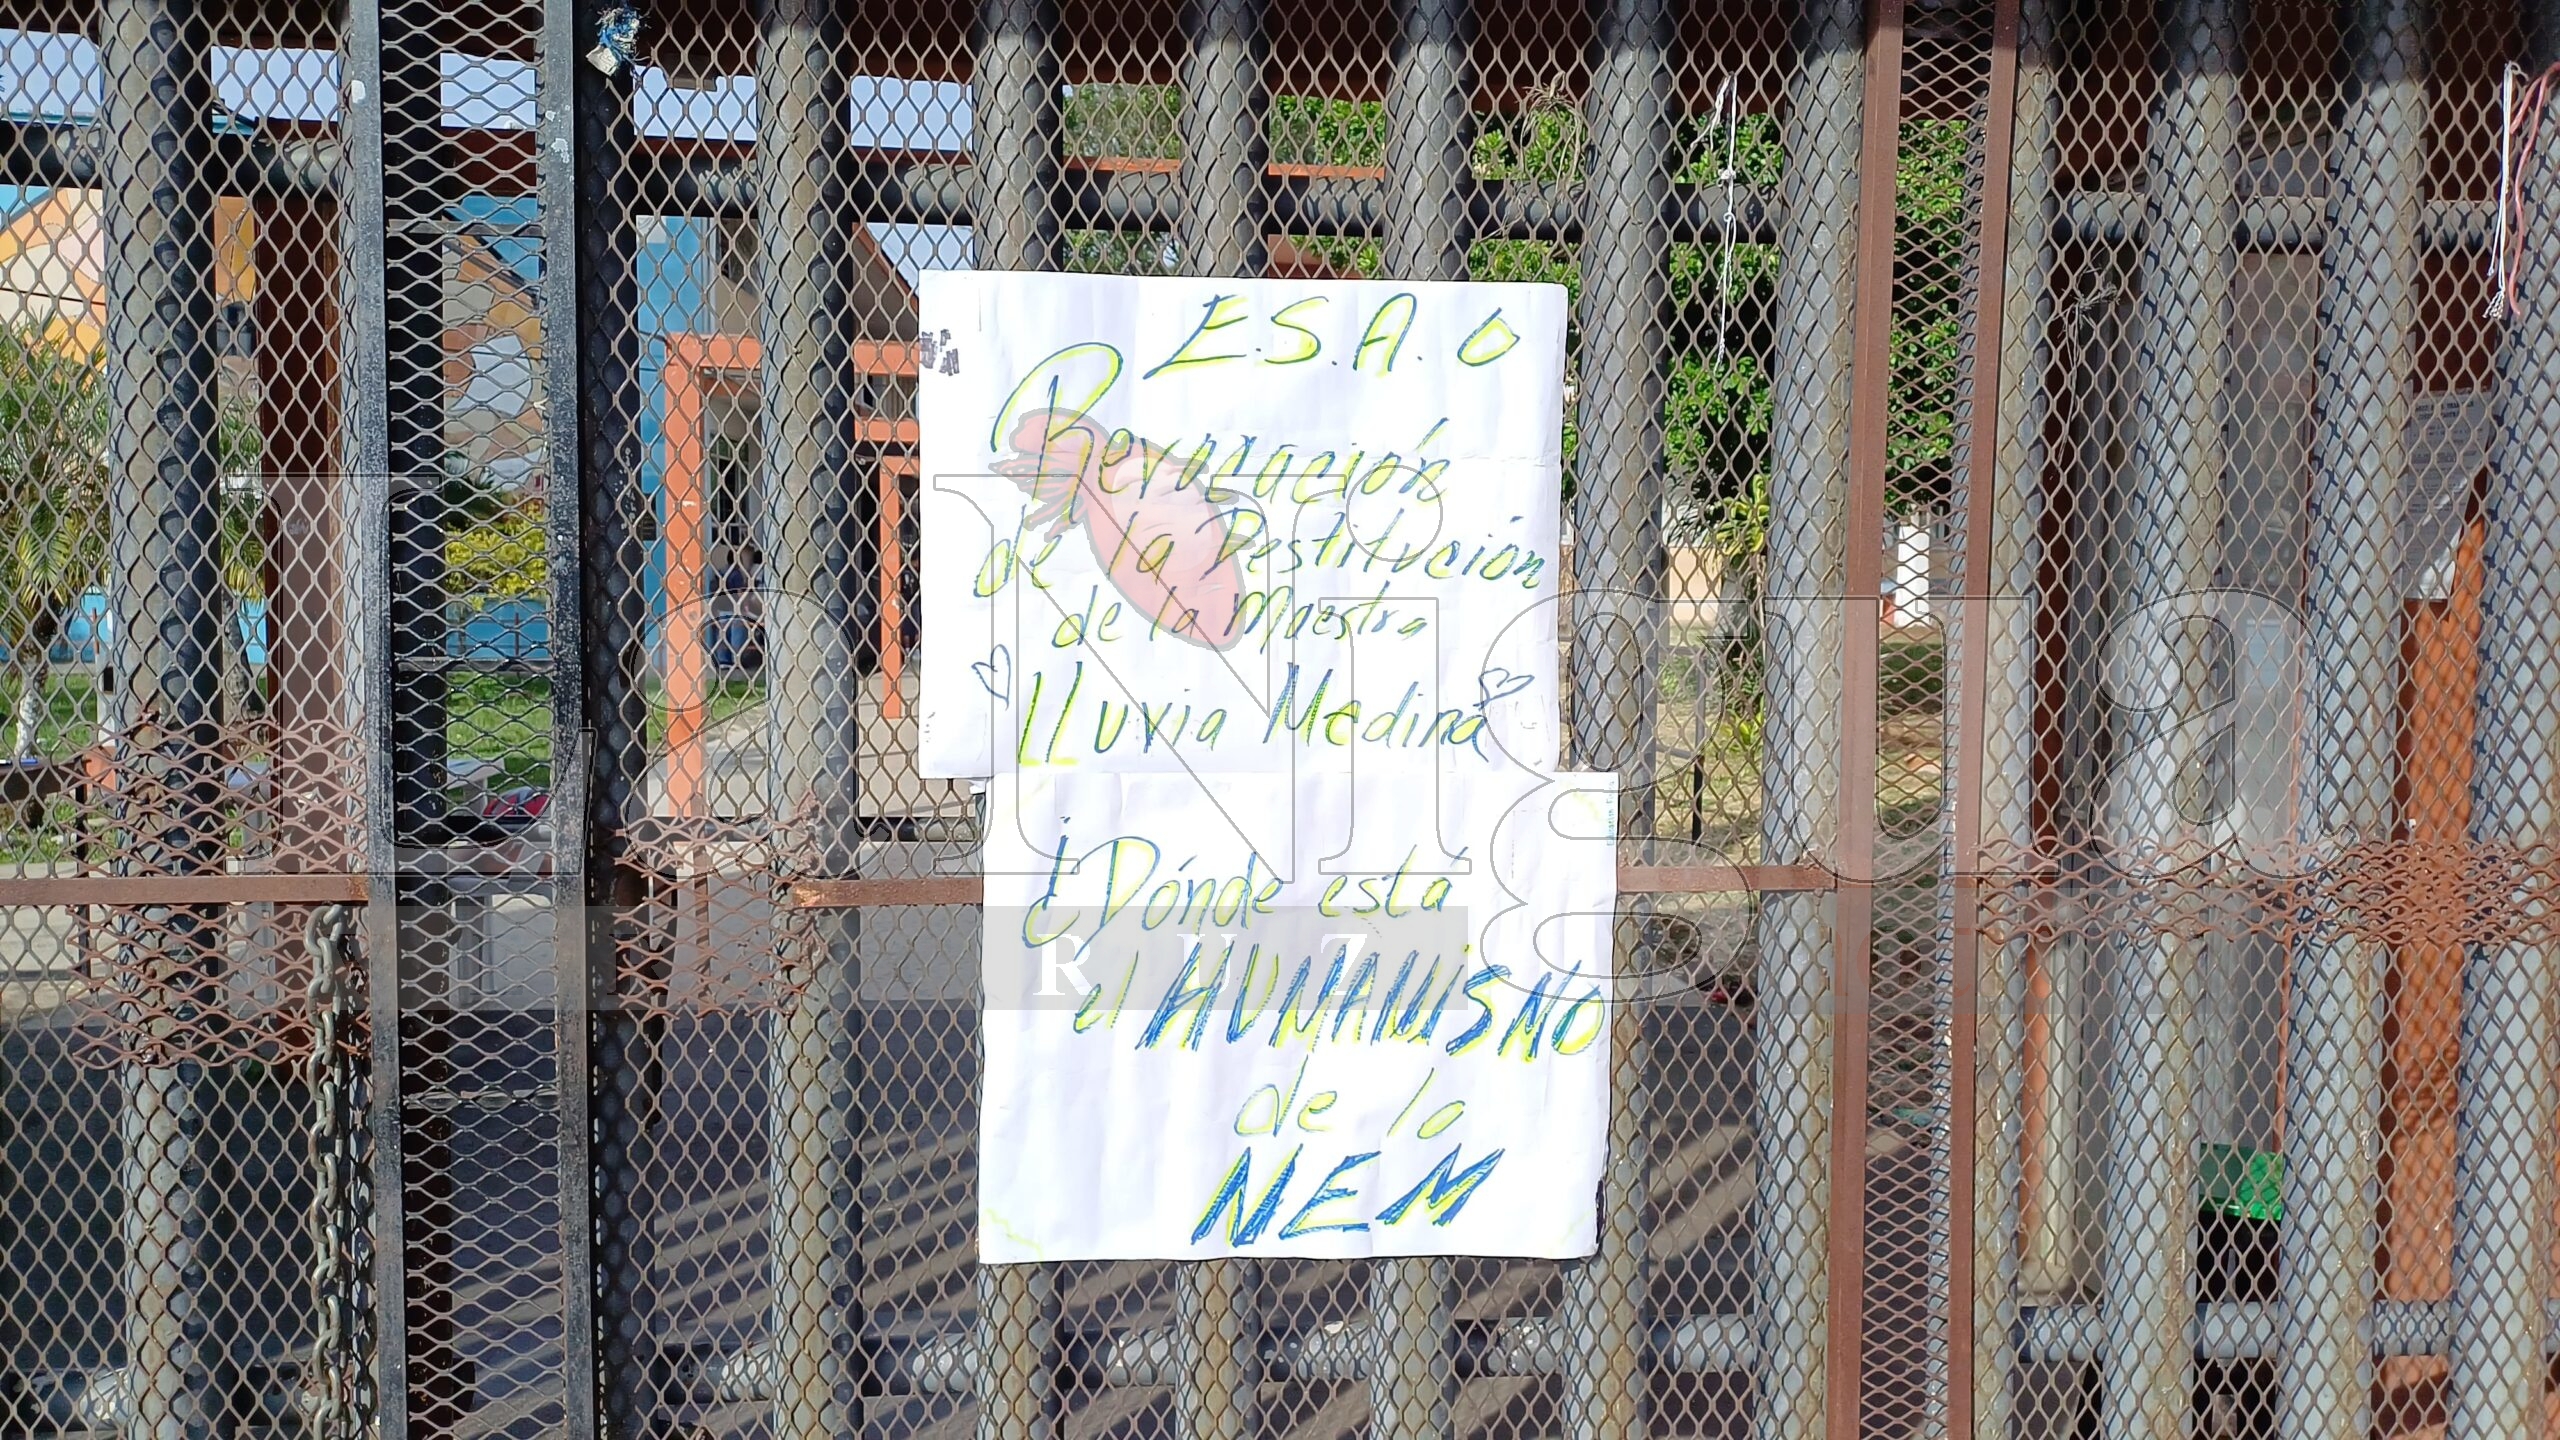 E.S.A. O
Revocación
de la Destitución
de la Maestra
LLuvia Medina
¿Dónde está
el HUMANISMO
de la
NEM
La Nigua
RUZ